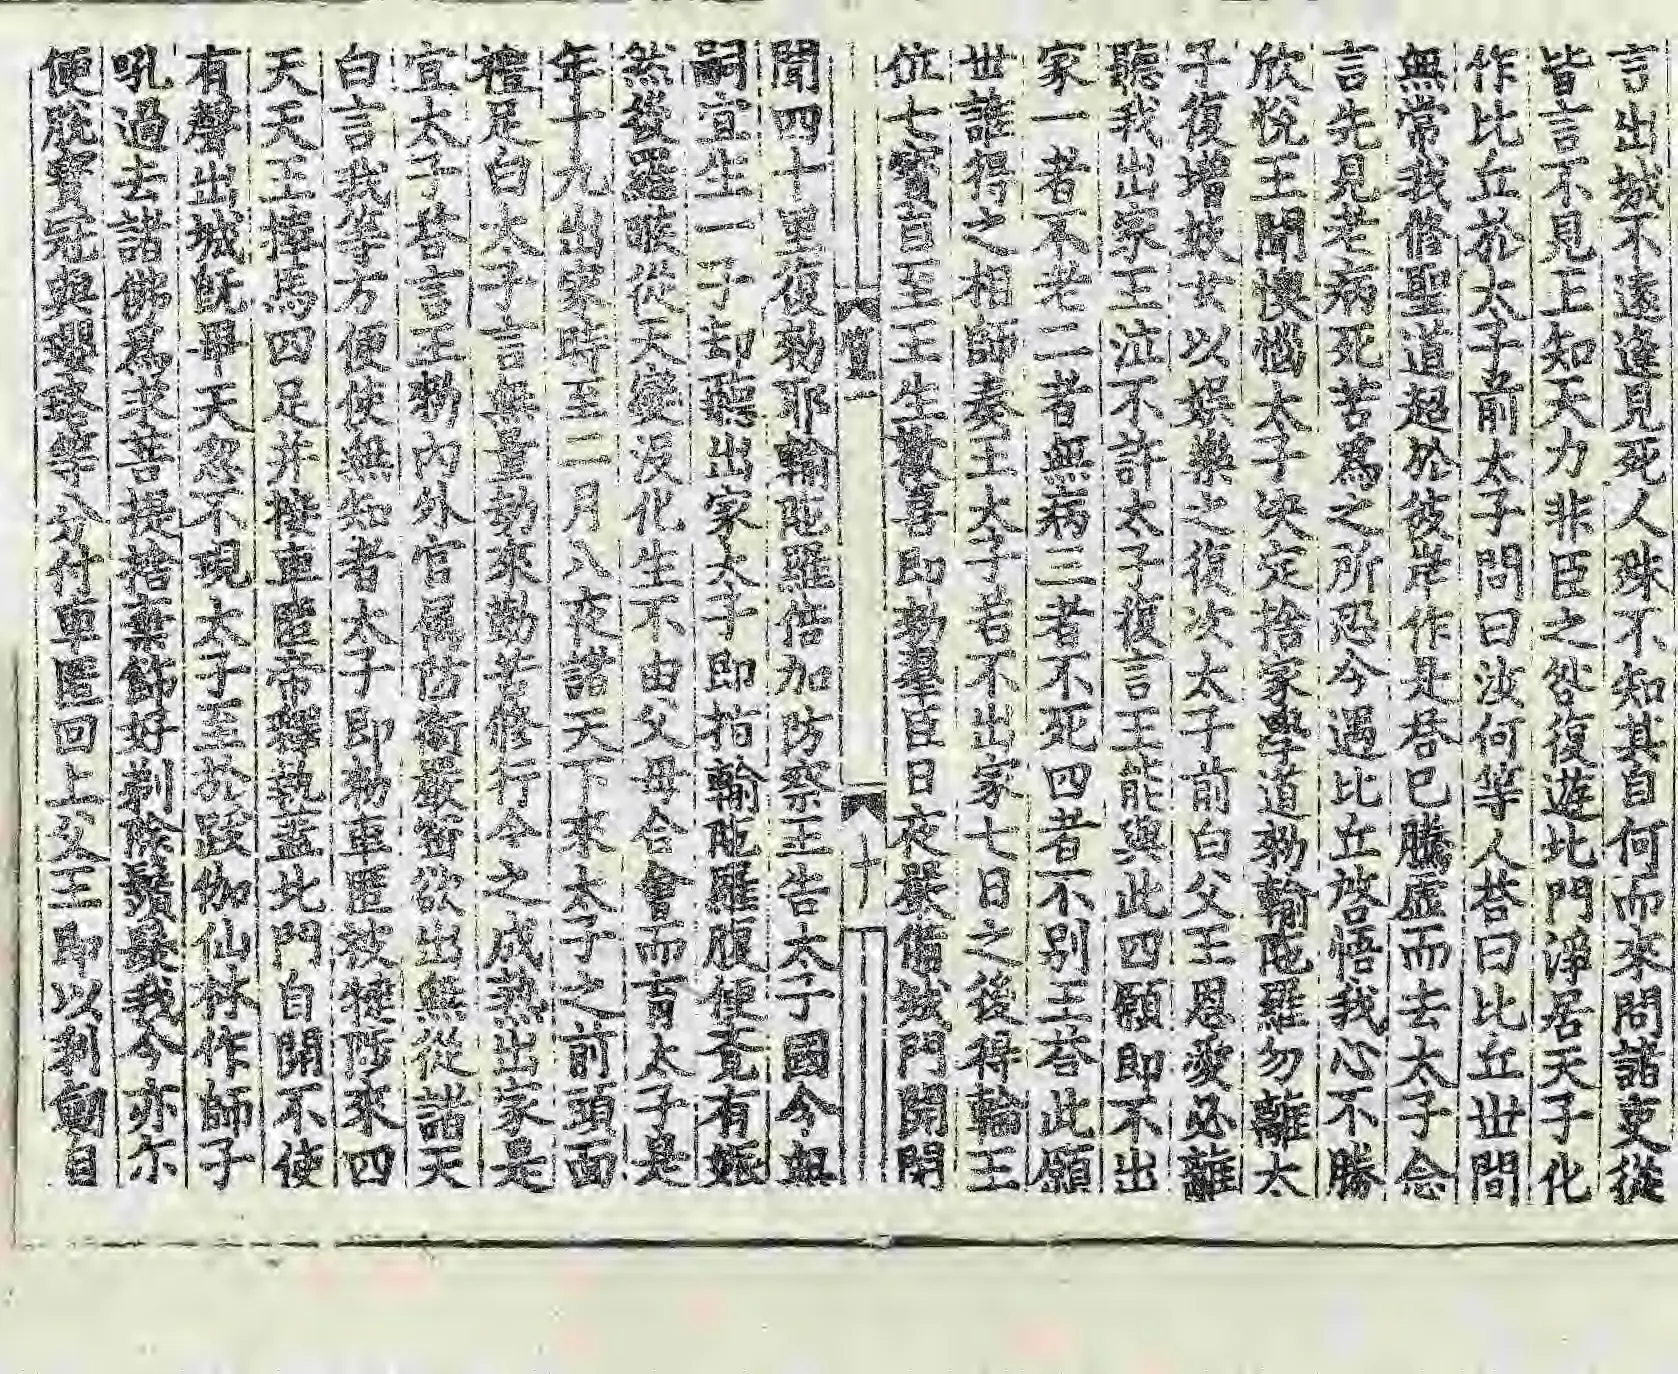 言出城不遠逢見死人殊不知其自何而來問諸吏從
皆言不見王知天力非臣之咎復遊北門淨居天子化
作比丘於太子前太子問曰汝何等人荅曰比丘世間
無常我修聖道超於彼岸作是荅已騰虛而去太子念
言先見老病死苦爲之所恐今遇比丘啓悟我心不勝
欣悅王聞懊惱太子決定捨家學道勑輸陁羅勿離太
子復增婇女以娛樂之復次太子前白父王恩愛必離
聽我出家王泣不許太子復言王能與此四願即不出
家一者不老二者無病三者不死四者不別王荅此願
世誰得之相師奏王太子若不出家七日之後得輪王
位七寳自至王生歡喜即勑羣臣日夜嚴備城門開閉
十
聞四十里復勑耶輸陁羅倍加防察王告太子國今無
嗣宜生一子却聽出家太子即指輸陁羅腹便覺有娠
然後羅睺從天變沒化生不由父母合會而有太子是
年十九出家時至二月八夜諸天下來太子之前頭面
禮足白太子言無量劫來勤苦修行今之成熟出家是
宜太子荅言王勑內外官属防衛嚴密欲出無從諸天
白言我等方便使無知者太子即勑車匿被揵陟來四
天天王捧馬四足并接車匿帝釋執蓋北門自開不使
有聲出城旣畢天忽不現太子至於跋伽仙林作師子
吼過去諸佛爲求菩提捨棄飾好剃除鬚髮我今亦尒
便脫寳冠與瓔珞等分付車匿回上父王即以利劒自